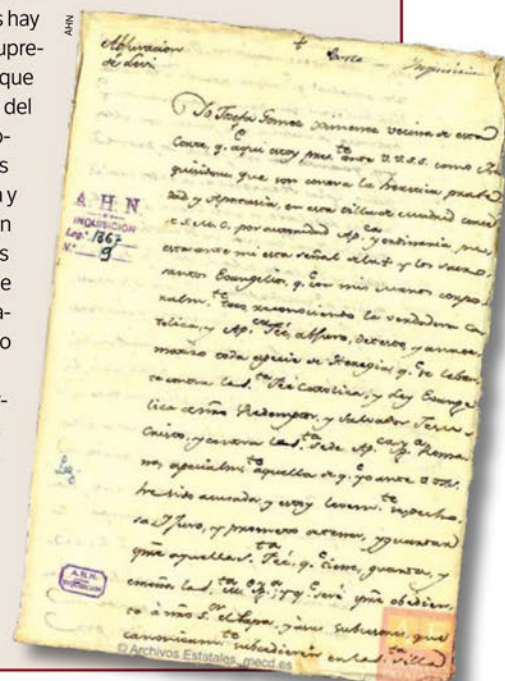 s hay
upre-
que
del
o-
s
a y
n
s
e
a-
o
r-
AHN
Abjuracion
de Levi
Yo Josefa Gomez Ximenez vecina de esta
Corte, q.e aqui estoy pres.te ante V.V.S.S. como In
quisidores que son contra la heretica prabe
dad y Apostasia, en esta villa de Madrid corte
de S.M.C. por autoridad Ap.ca y ordinaria, pues
ta ante mi esta señal de la † y los sacro
santos Evangelios, q.e con mis manos corpo
ralm.te toco, reconociendo la verdadera ca
tolica, y Ap.ca Feé, abjuro, detesto y anate
matizo toda especie de Heregia, q.e se leban
te contra la S.ta Feé Catolica, y Ley Evange
lica de nro Redemptor, y Salvador Jesu
Cristo, y contra la S.ta Sede Ap.ca y Roma
na, especialm.te aquella de q.e yo ante V.V.SS.
he sido acusada y estoy levem.te sospecho
sa Y Juro, y prometo de tener, y guardar
spre aquella S.ta Feé, q.e tiene, guarda, y
enseña la S.ta y q.e seré spre obedien
te à nro S.r el Papa, y à sus subcesores, que
canonicam.te subcedieren en la S.ta Silla
A.H.N.
INQUISICION
Leg.o 1867
N.o 9
A.H.N.
© Archivos Estatales, mecd.es